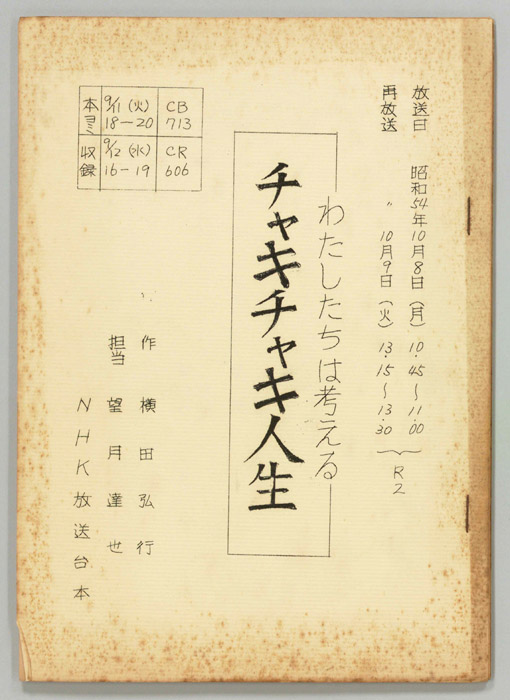 放送日 昭和54年10月8日(月) 10.45~11.00
再放送 〃 10月9日(火) 13.15~13.30
R2
わたしたちは考える
チャキチャキ人生
本ヨミ 9/11(火) 18-20 CB 713
収録 9/12(水) 16-19 CR 606
作 横田弘行
担当 望月達也
NHK放送台本